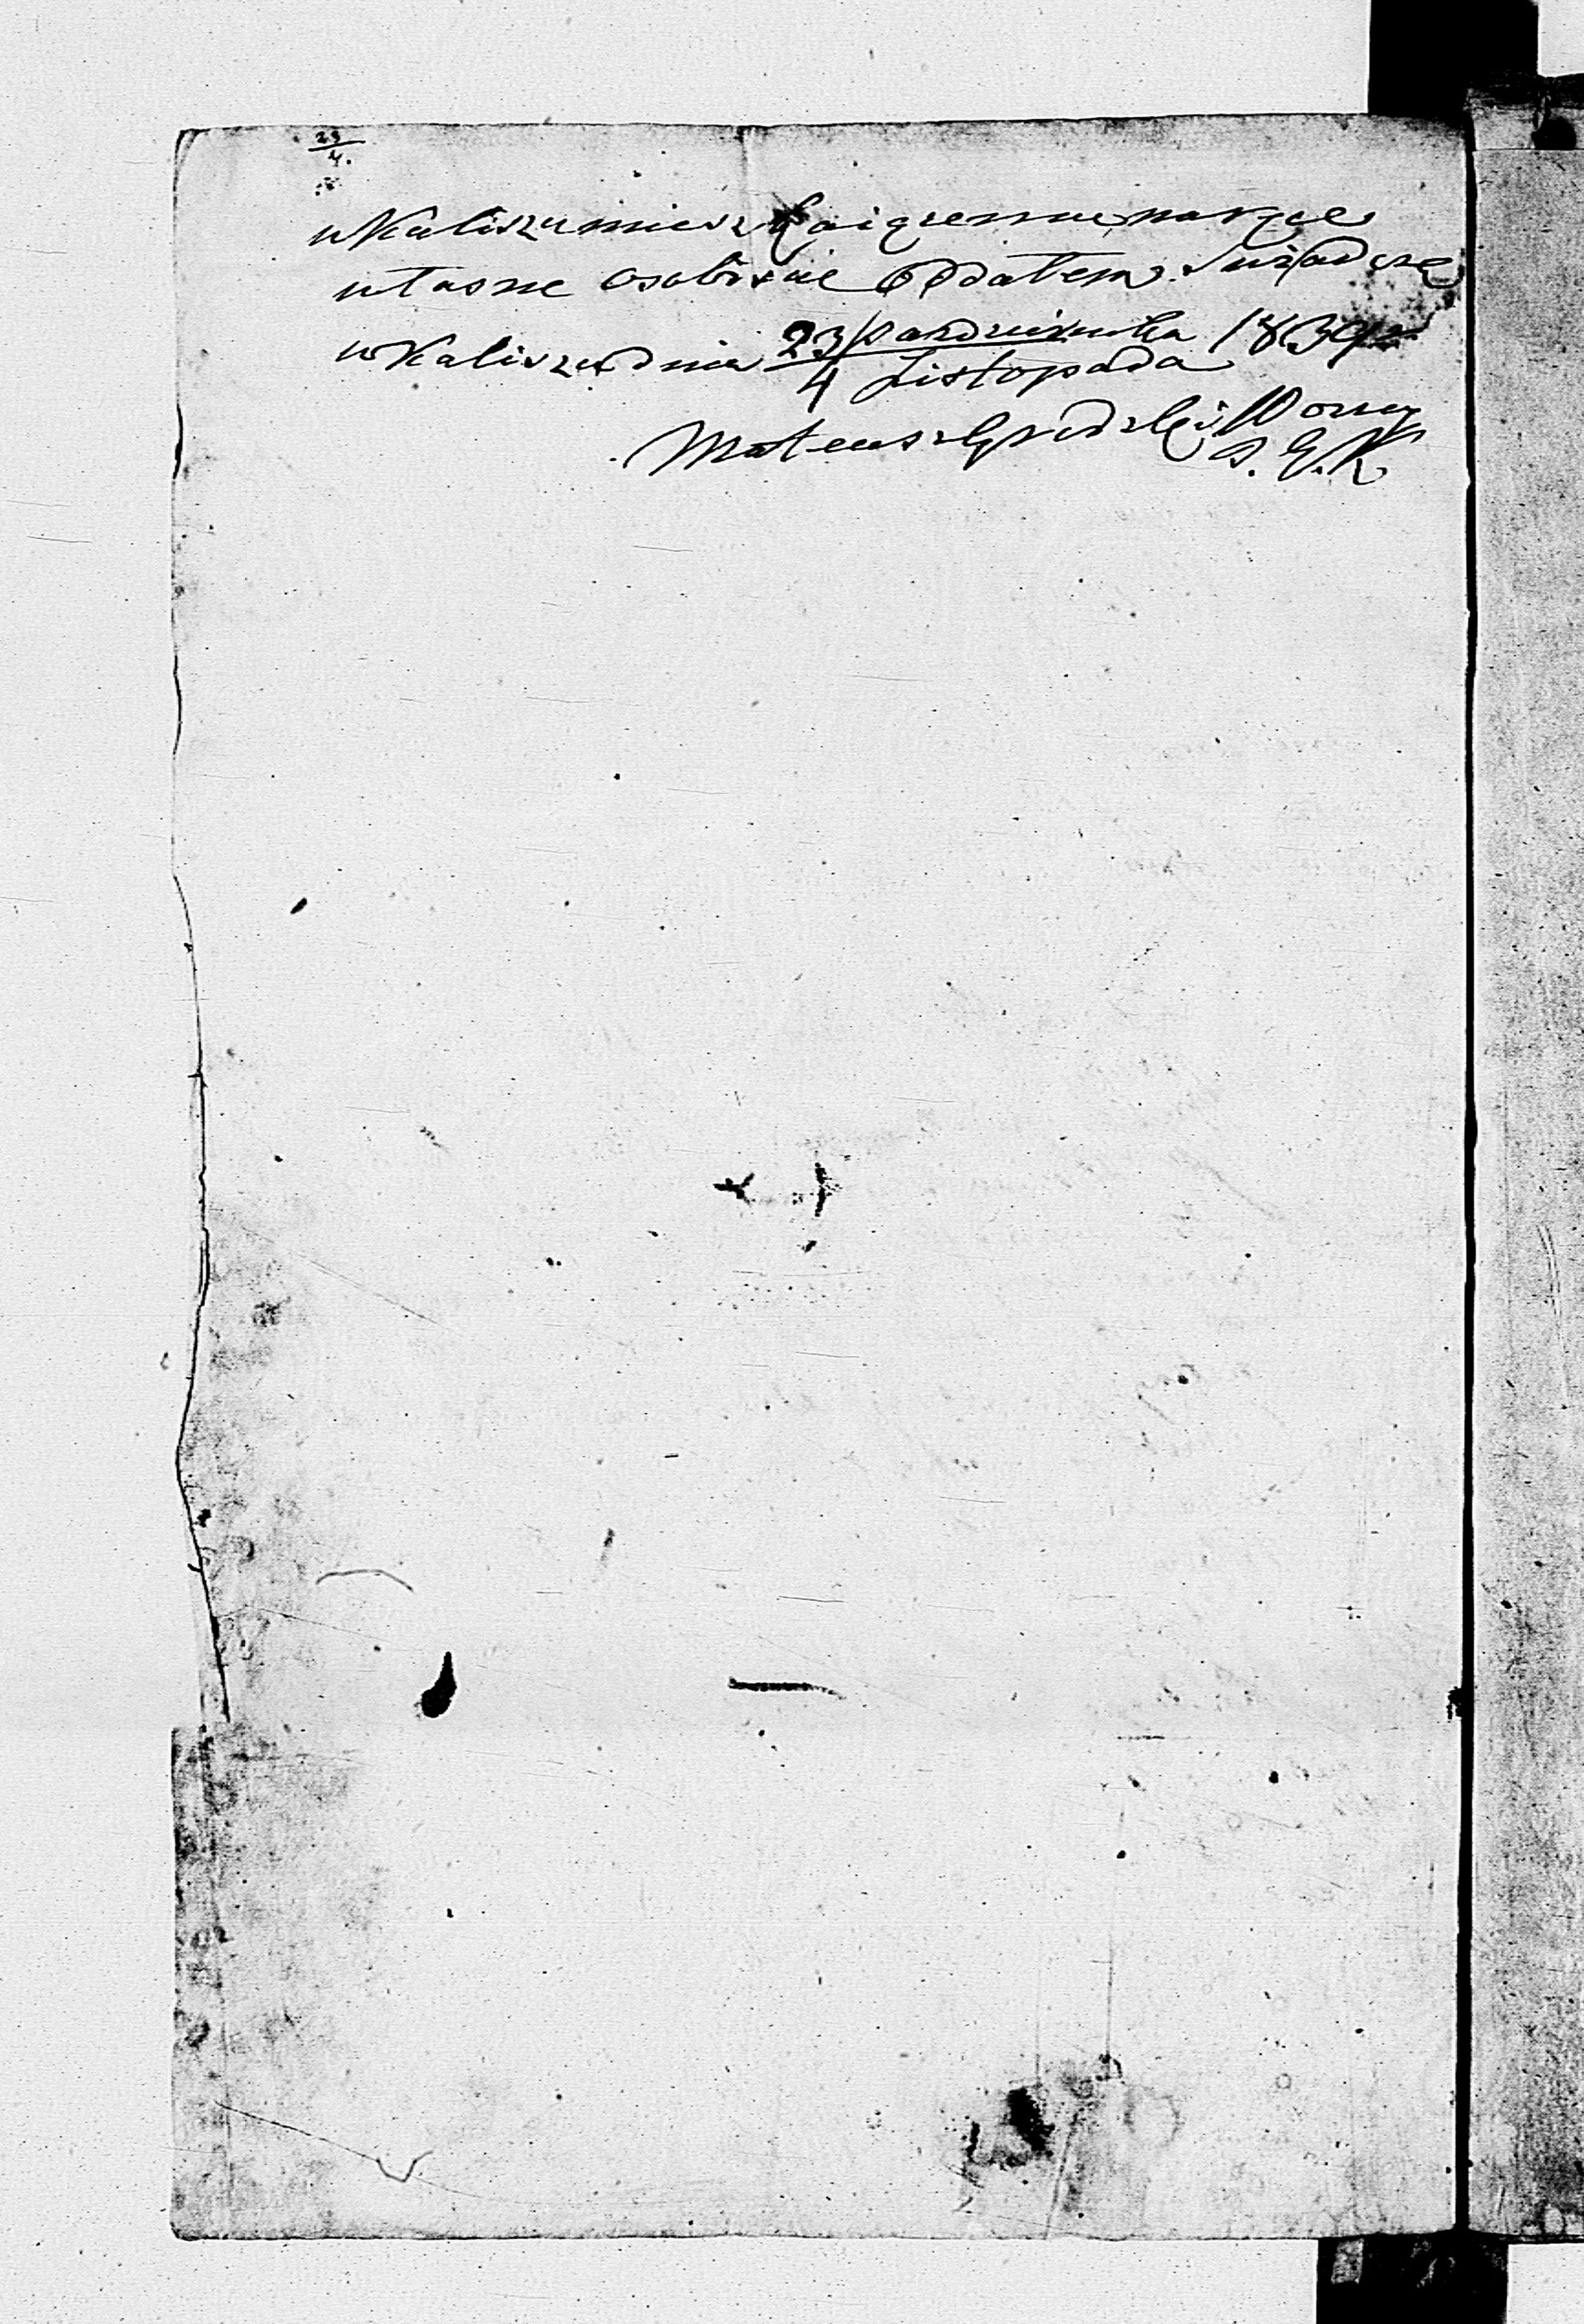 23
4.
w Kaliszu mieszkaiącemu na ręce
własne osobiście Oddałem. Swiadczę
w Kaliszu dnia 23 Pazdziernika 1839
4 Listopada
Mateusz Worny